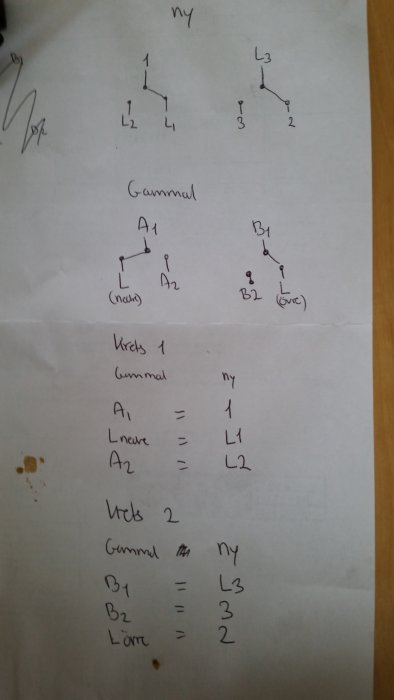 ny
1 L3
L2 L1 3 2
Gammal
A1 B1
L A2 B2 L
(nedre) (övre)
Krets 1
Gammal ny
A1 = 1
Lnedre = L1
A2 = L2
Krets 2
Gammal ny
B1 = L3
B2 = 3
Lövre = 2